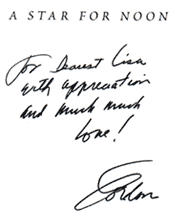 A STAR FOR NOON
For Dearest Lisa
with appreciation
and much much
love!
Gordon